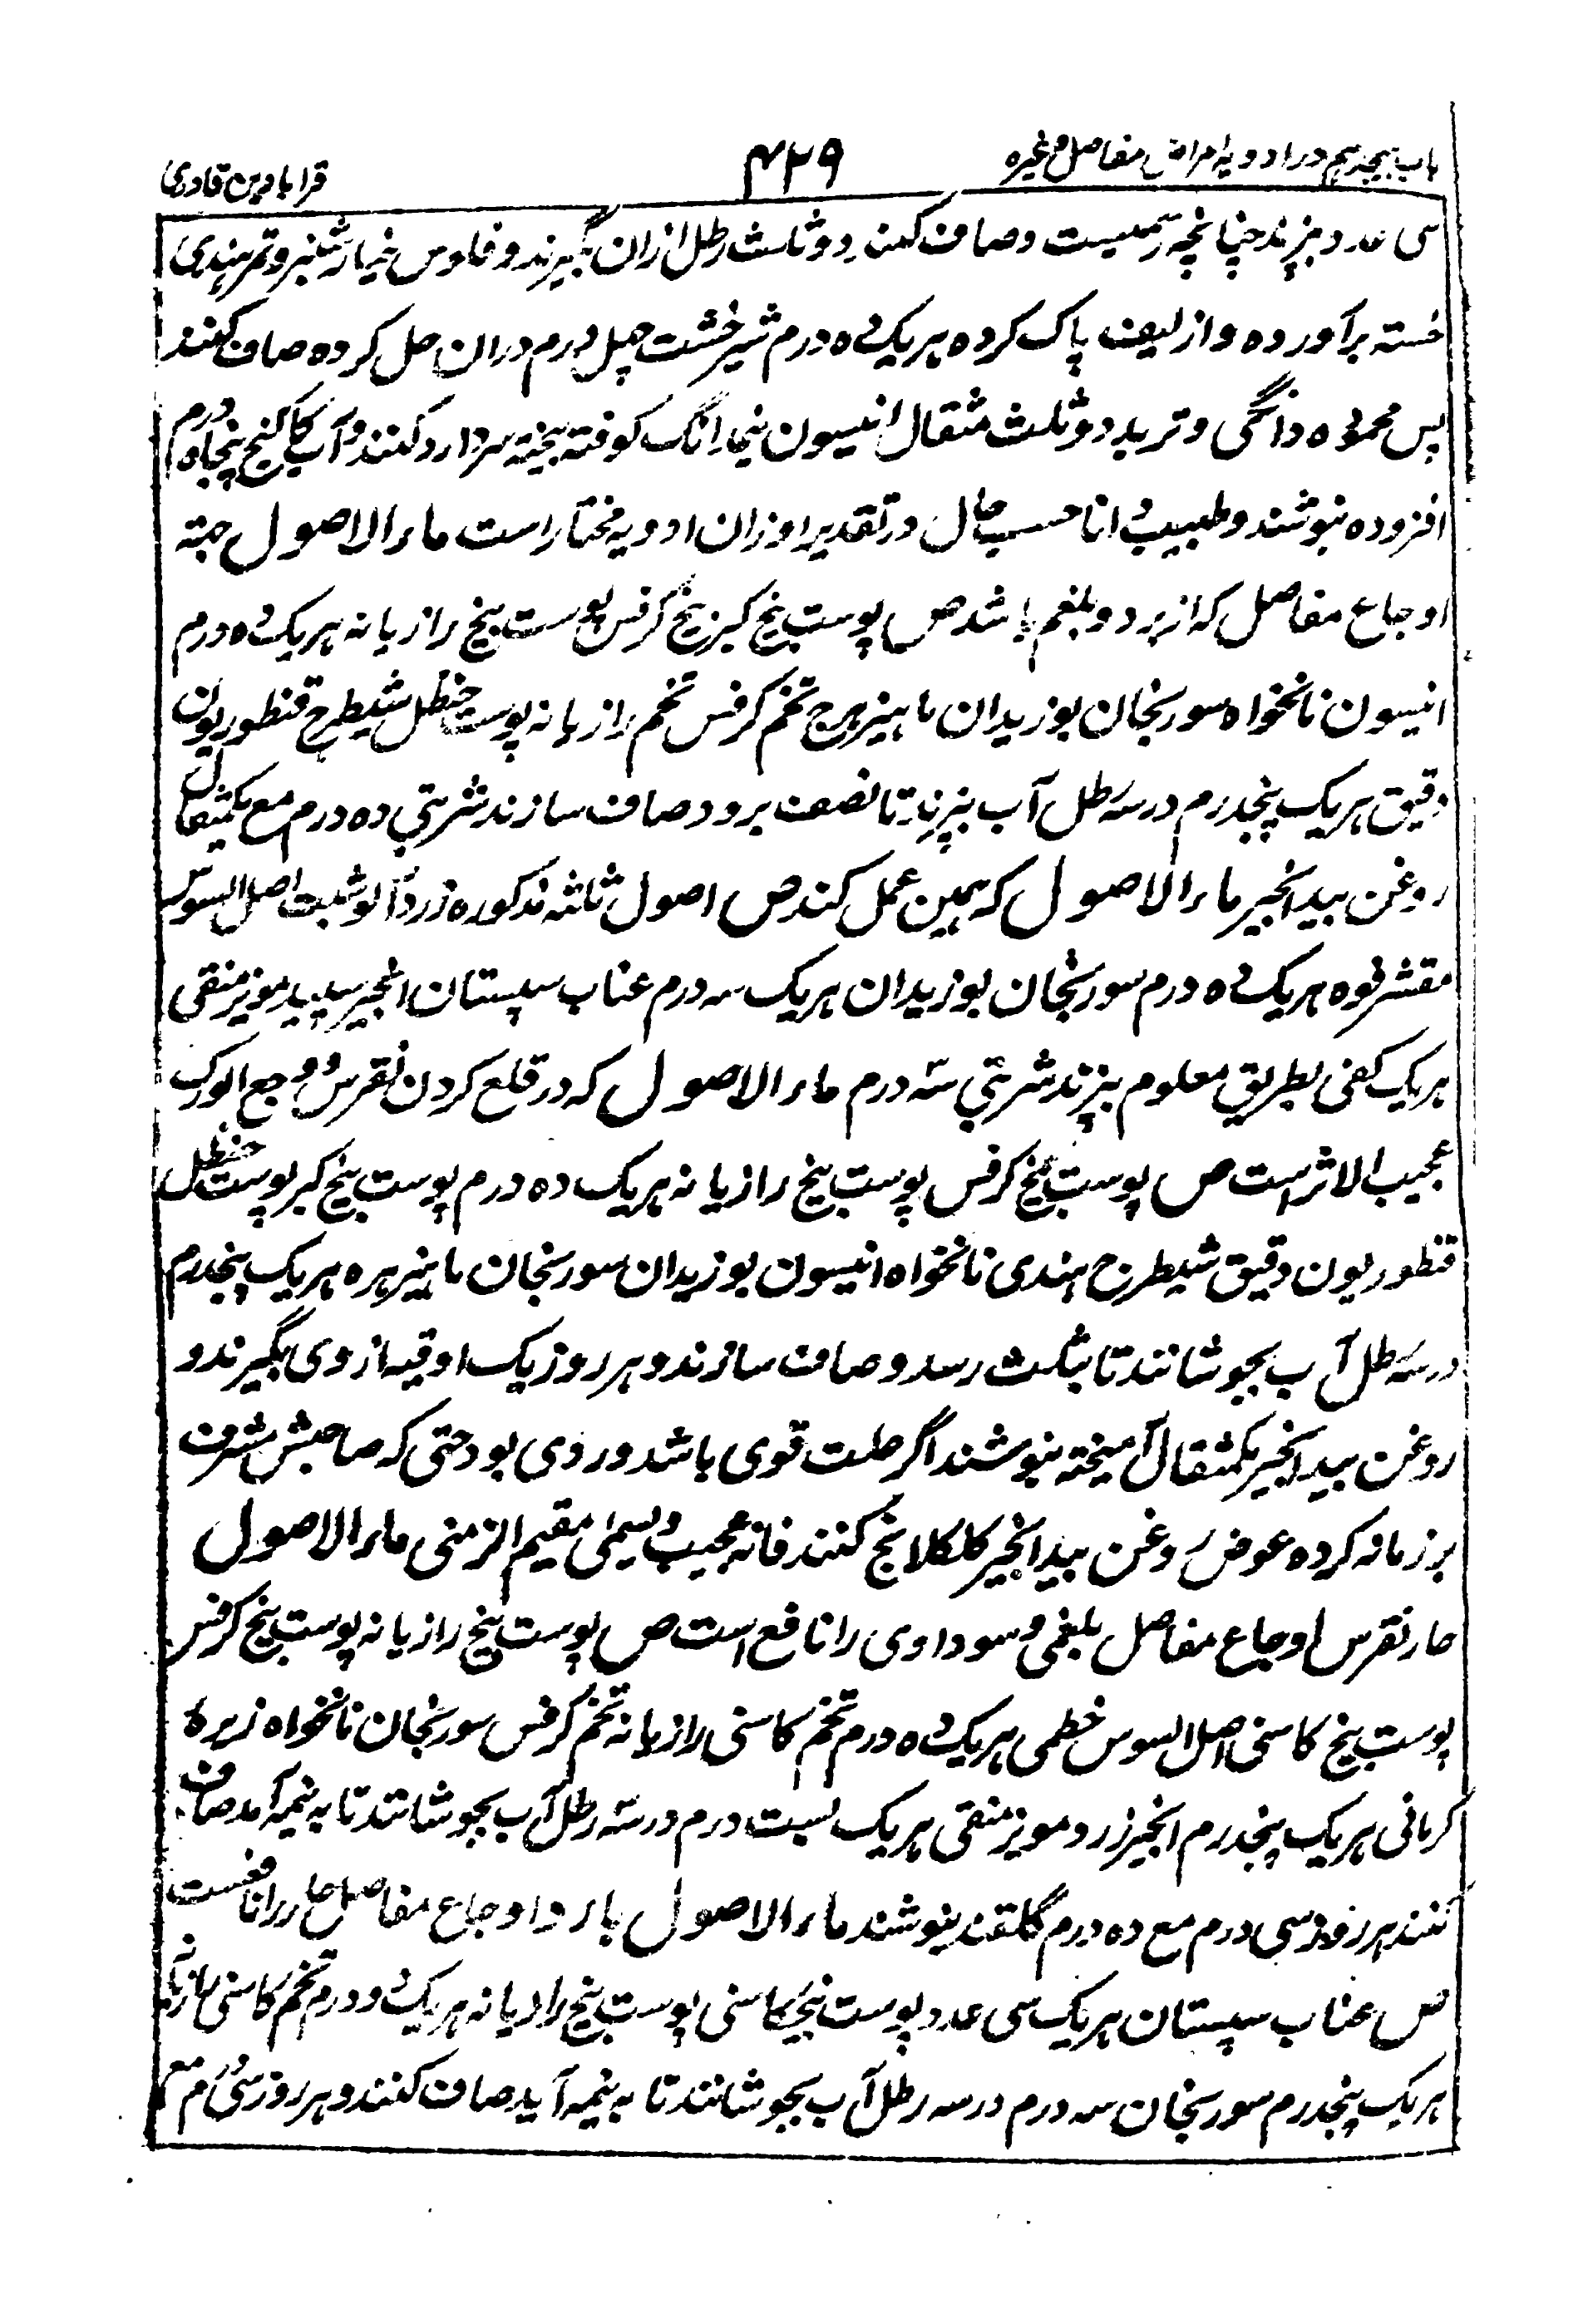 باب هیجدهم در ادویه امراض مفاصل وغیره
۴۲۹
قرابادین قادری
سی عدد بپزند چنانچه رسمیست و صاف کنند و دو ثلث رطل ازان بگیرند و فلوس خیارشنبر و تمرهندی
خسته برآورده و از لیف پاک کرده هریک ده درم شیرخشت چهل درم دران حل کرده صاف کنند
پس محموده دانگی و تربد دو ثلث مثقال انیسون نیمدانگ کوفته بیخته سردارد کنند و آب کاکنج پنجاه درم
افزوده بنوشند و طبیب دانا حسب حال در تقدیر اوزان ادویه مختار است ماءالاصول جهته
اوجاع مفاصل که از برد و بلغم باشد ص پوست بیخ کبر بیخ کرفس پوست بیخ رازیانه هریک ده درم
انیسون نانخواه سورنجان بوزیدان ماهیزهرج تخم کرفس تخم رازیانه پوست حنظل شیطرج قنطوریون
دقیق هریک پنجدرم در سه رطل آب بپزند تا نصف برود صاف سازند شربتی ده درم مع یکمثقال
روغن بیدانجیر ماءالاصول که همین عمل کند ص اصول ثلثه مذکوره زردآلو شبت اصل السوس
مقشر فوه هریک ده درم سورنجان بوزیدان هریک سه درم عناب سپستان انجیر سپید مویز منقی
هریک کفی بطریق معلوم بپزند شربتی سه درم ماءالاصول که در قلع کردن نقرس و وجع الورک
عجیب الاثر است ص پوست بیخ کرفس پوست بیخ رازیانه هریک ده درم پوست بیخ کبر پوست حنظل
قنطوریون دقیق شیطرج هندی نانخواه انیسون بوزیدان سورنجان ماهیزهره هریک پنجدرم
در سه رطل آب بجوشانند تا بثلث رسد و صاف سازند و هر روز یک اوقیه از وی بگیرند و
روغن بیدانجیر یکمثقال آمیخته بنوشند اگر علت قوی باشد و ردی بود حتی که صاحبش مشرف
بر زمانه کرده عوض روغن بیدانجیر کلکلانج کنند فانه عجیب و یسمی مقیم الزمنی ماءالاصول
حار نقرس اوجاع مفاصل بلغمی و سوداوی را نافع است ص پوست بیخ رازیانه پوست بیخ کرفس
پوست بیخ کاسنی اصل السوس خطمی هریک ده درم تخم کاسنی رازیانه تخم کرفس سورنجان نانخواه زیره
کرمانی هریک پنجدرم انجیر زرد مویز منقی هریک بست درم در سه رطل آب بجوشانند تا به نیمه آمد صاف
کنند هر روز سی درم مع ده درم گلقند بنوشند ماءالاصول بارد اوجاع مفاصل حار را نافعست
ص عناب سپستان هریک سی عدد پوست بیخ کاسنی پوست بیخ رازیانه هریک دو درم تخم کاسنی رازیانه
هریک پنجدرم سورنجان سه درم در سه رطل آب بجوشانند تا به نیمه آید صاف کنند و هر روز سی درم مع